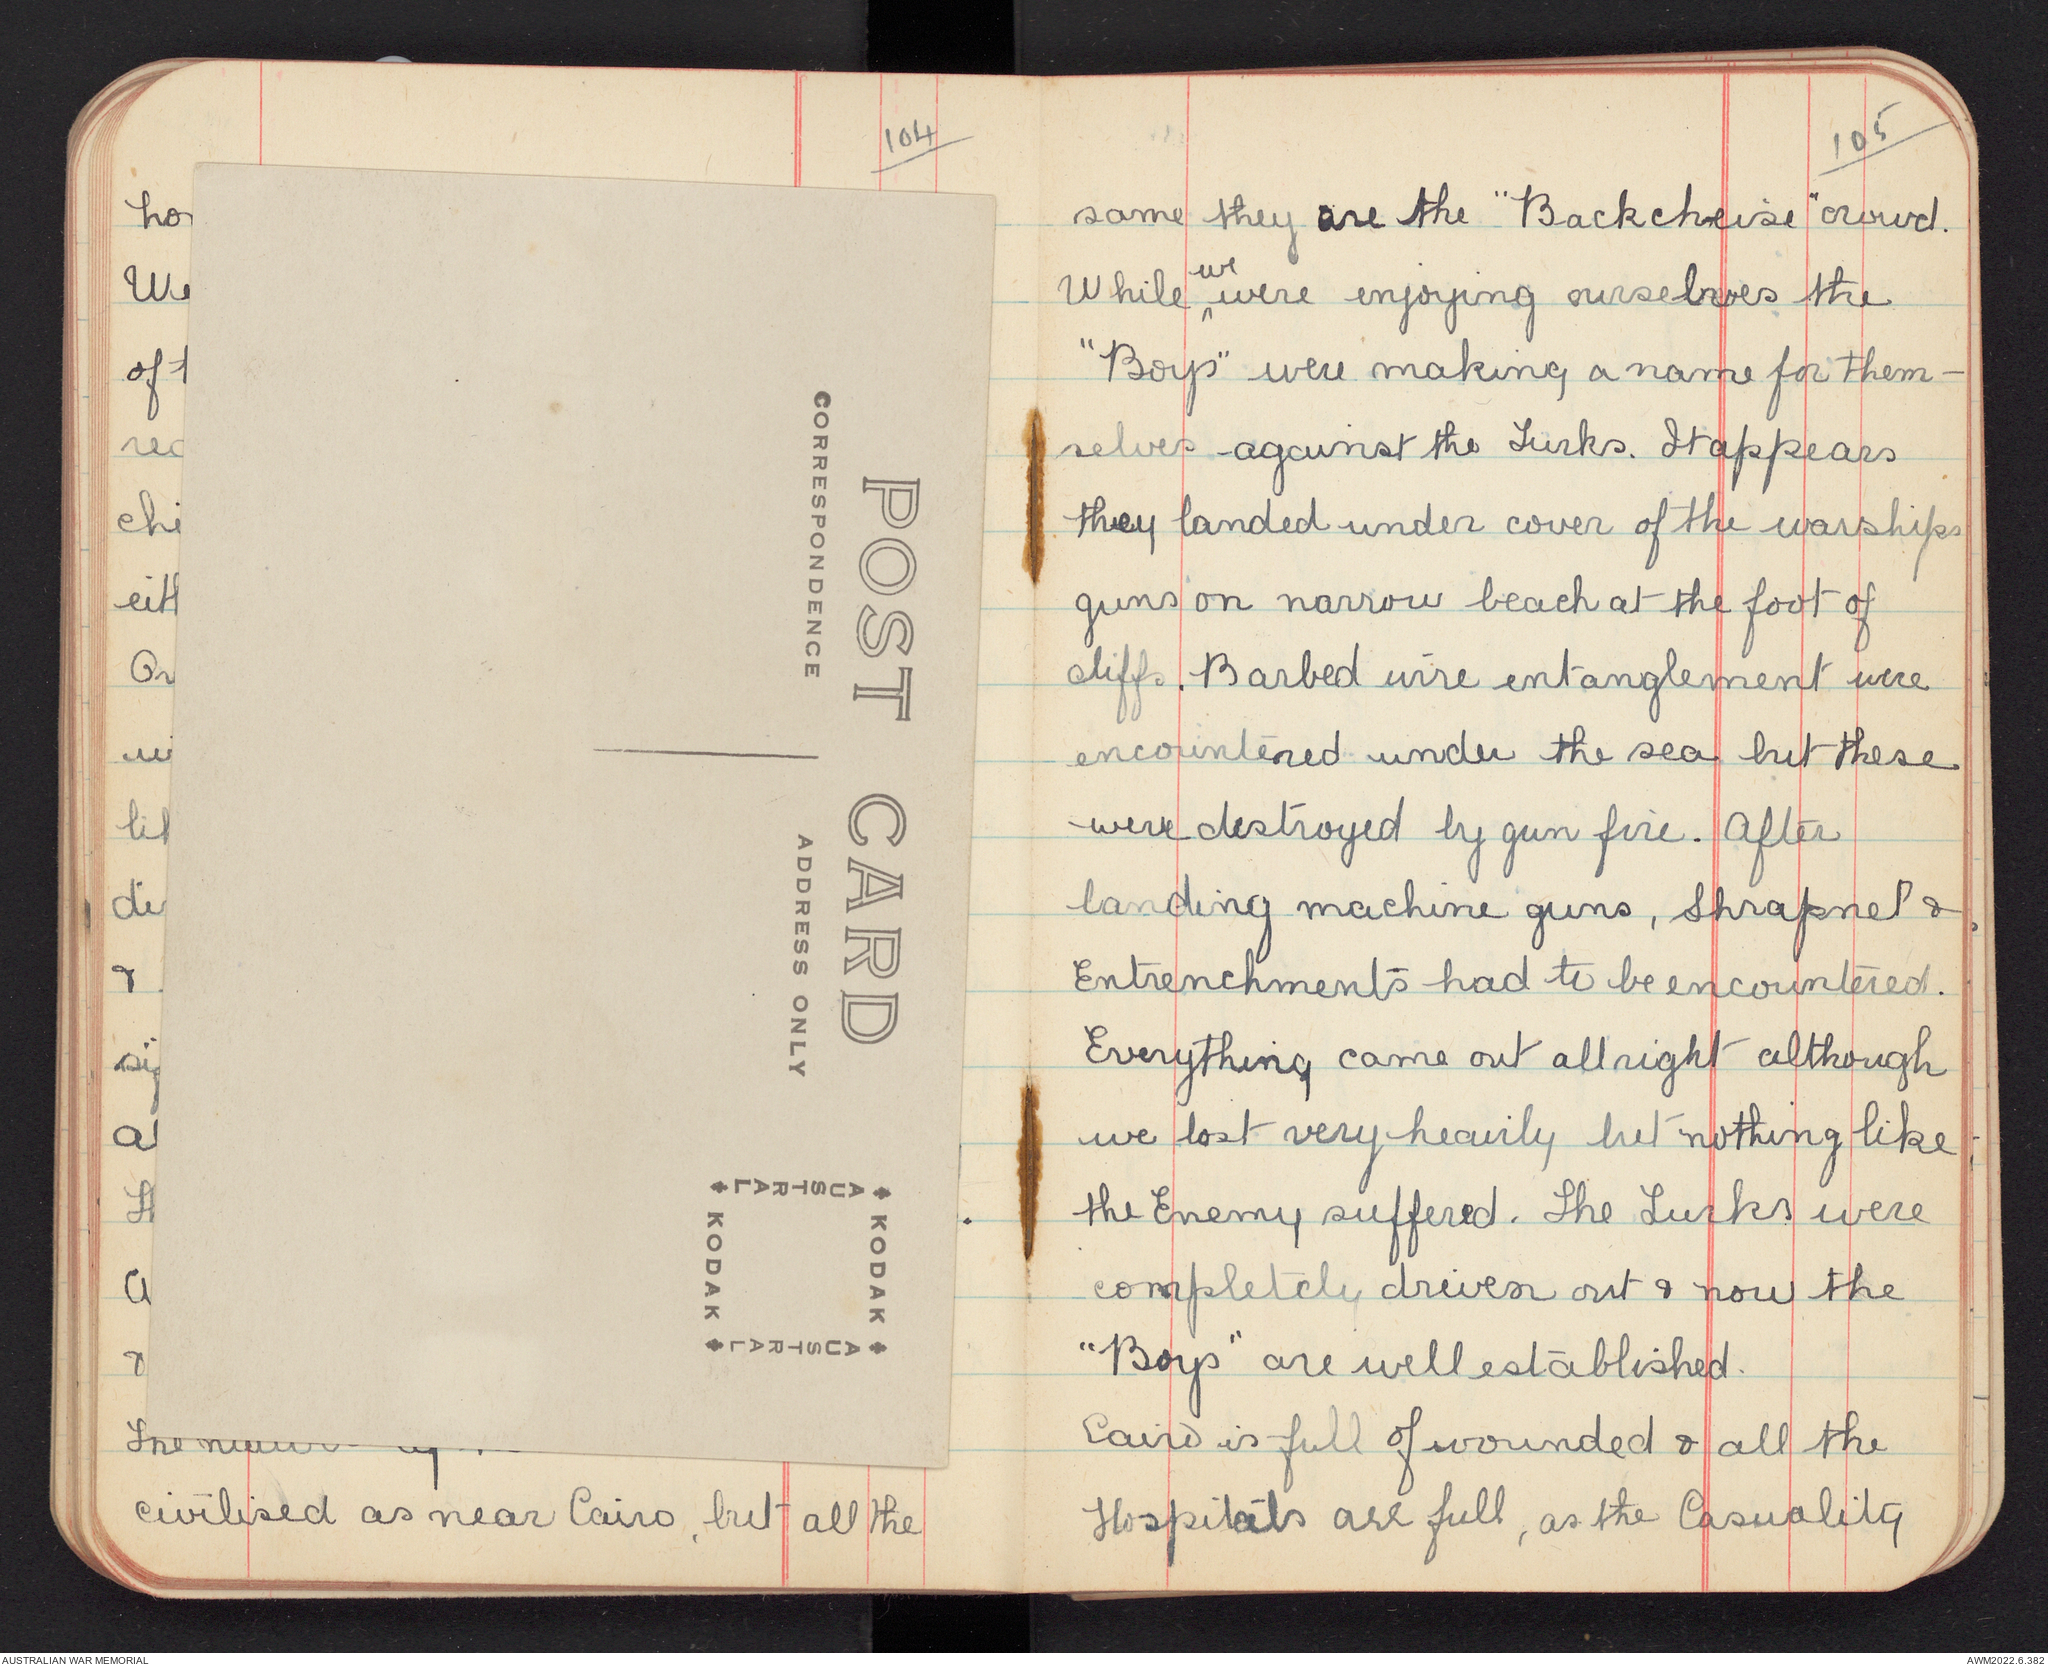 104
ho
We
of t
rec
chi
eith
On
wi
lik
di
&
si
a
Th
a
&
civilised as near Cairo, but all the
POST CARD
CORRESPONDENCE
ADDRESS ONLY
KODAK
AUSTRAL
KODAK
AUSTRAL
105
same they are the "Backcheise" crowd.
While we were enjoying ourselves the
"Boys" were making a name for them-
selves against the Turks. It appears
they landed under cover of the warships
guns on narrow beach at the foot of
cliffs. Barbed wire entanglement were
encountered under the sea but these
were destroyed by gun fire. After
landing machine guns, Shrapnel &
Entrenchments had to be encountered.
Everything came out allright although
we lost very heavily but nothing like
the Enemy suffered. The Turks were
completely driven out & now the
"Boys" are well established.
Cairo is full of wounded & all the
Hospitals are full, as the Casuality
AUSTRALIAN WAR MEMORIAL
AWM2022.6.382